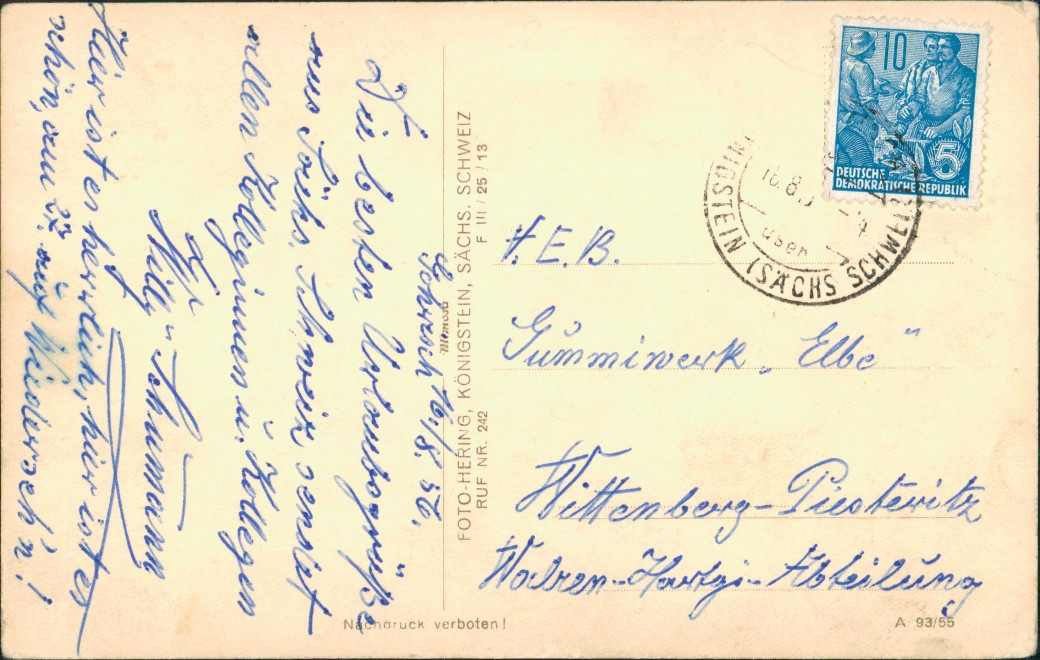 Gohrisch 16./8. 56.
Die besten Urlaubsgrüße
aus Sächs. Schweiz sendet
allen Kolleginnen u. Kollegen
Willy Schumann
Hier ist es herrlich, hier ist es
schön, auf Wiederseh'n!
FOTO-HERING, KÖNIGSTEIN, SÄCHS. SCHWEIZ
RUF NR. 242 F III / 25 / 13
Mimosa
Nachdruck verboten!
10
5
DEUTSCHE
DEMOKRATISCHE REPUBLIK
16.8.
(SÄCHS SCHWEIZ
V.E.B.
Gummiwerk „Elbe"
Wittenberg-Piesteritz
Walzen-Hartgi-Abteilung
A 93/55